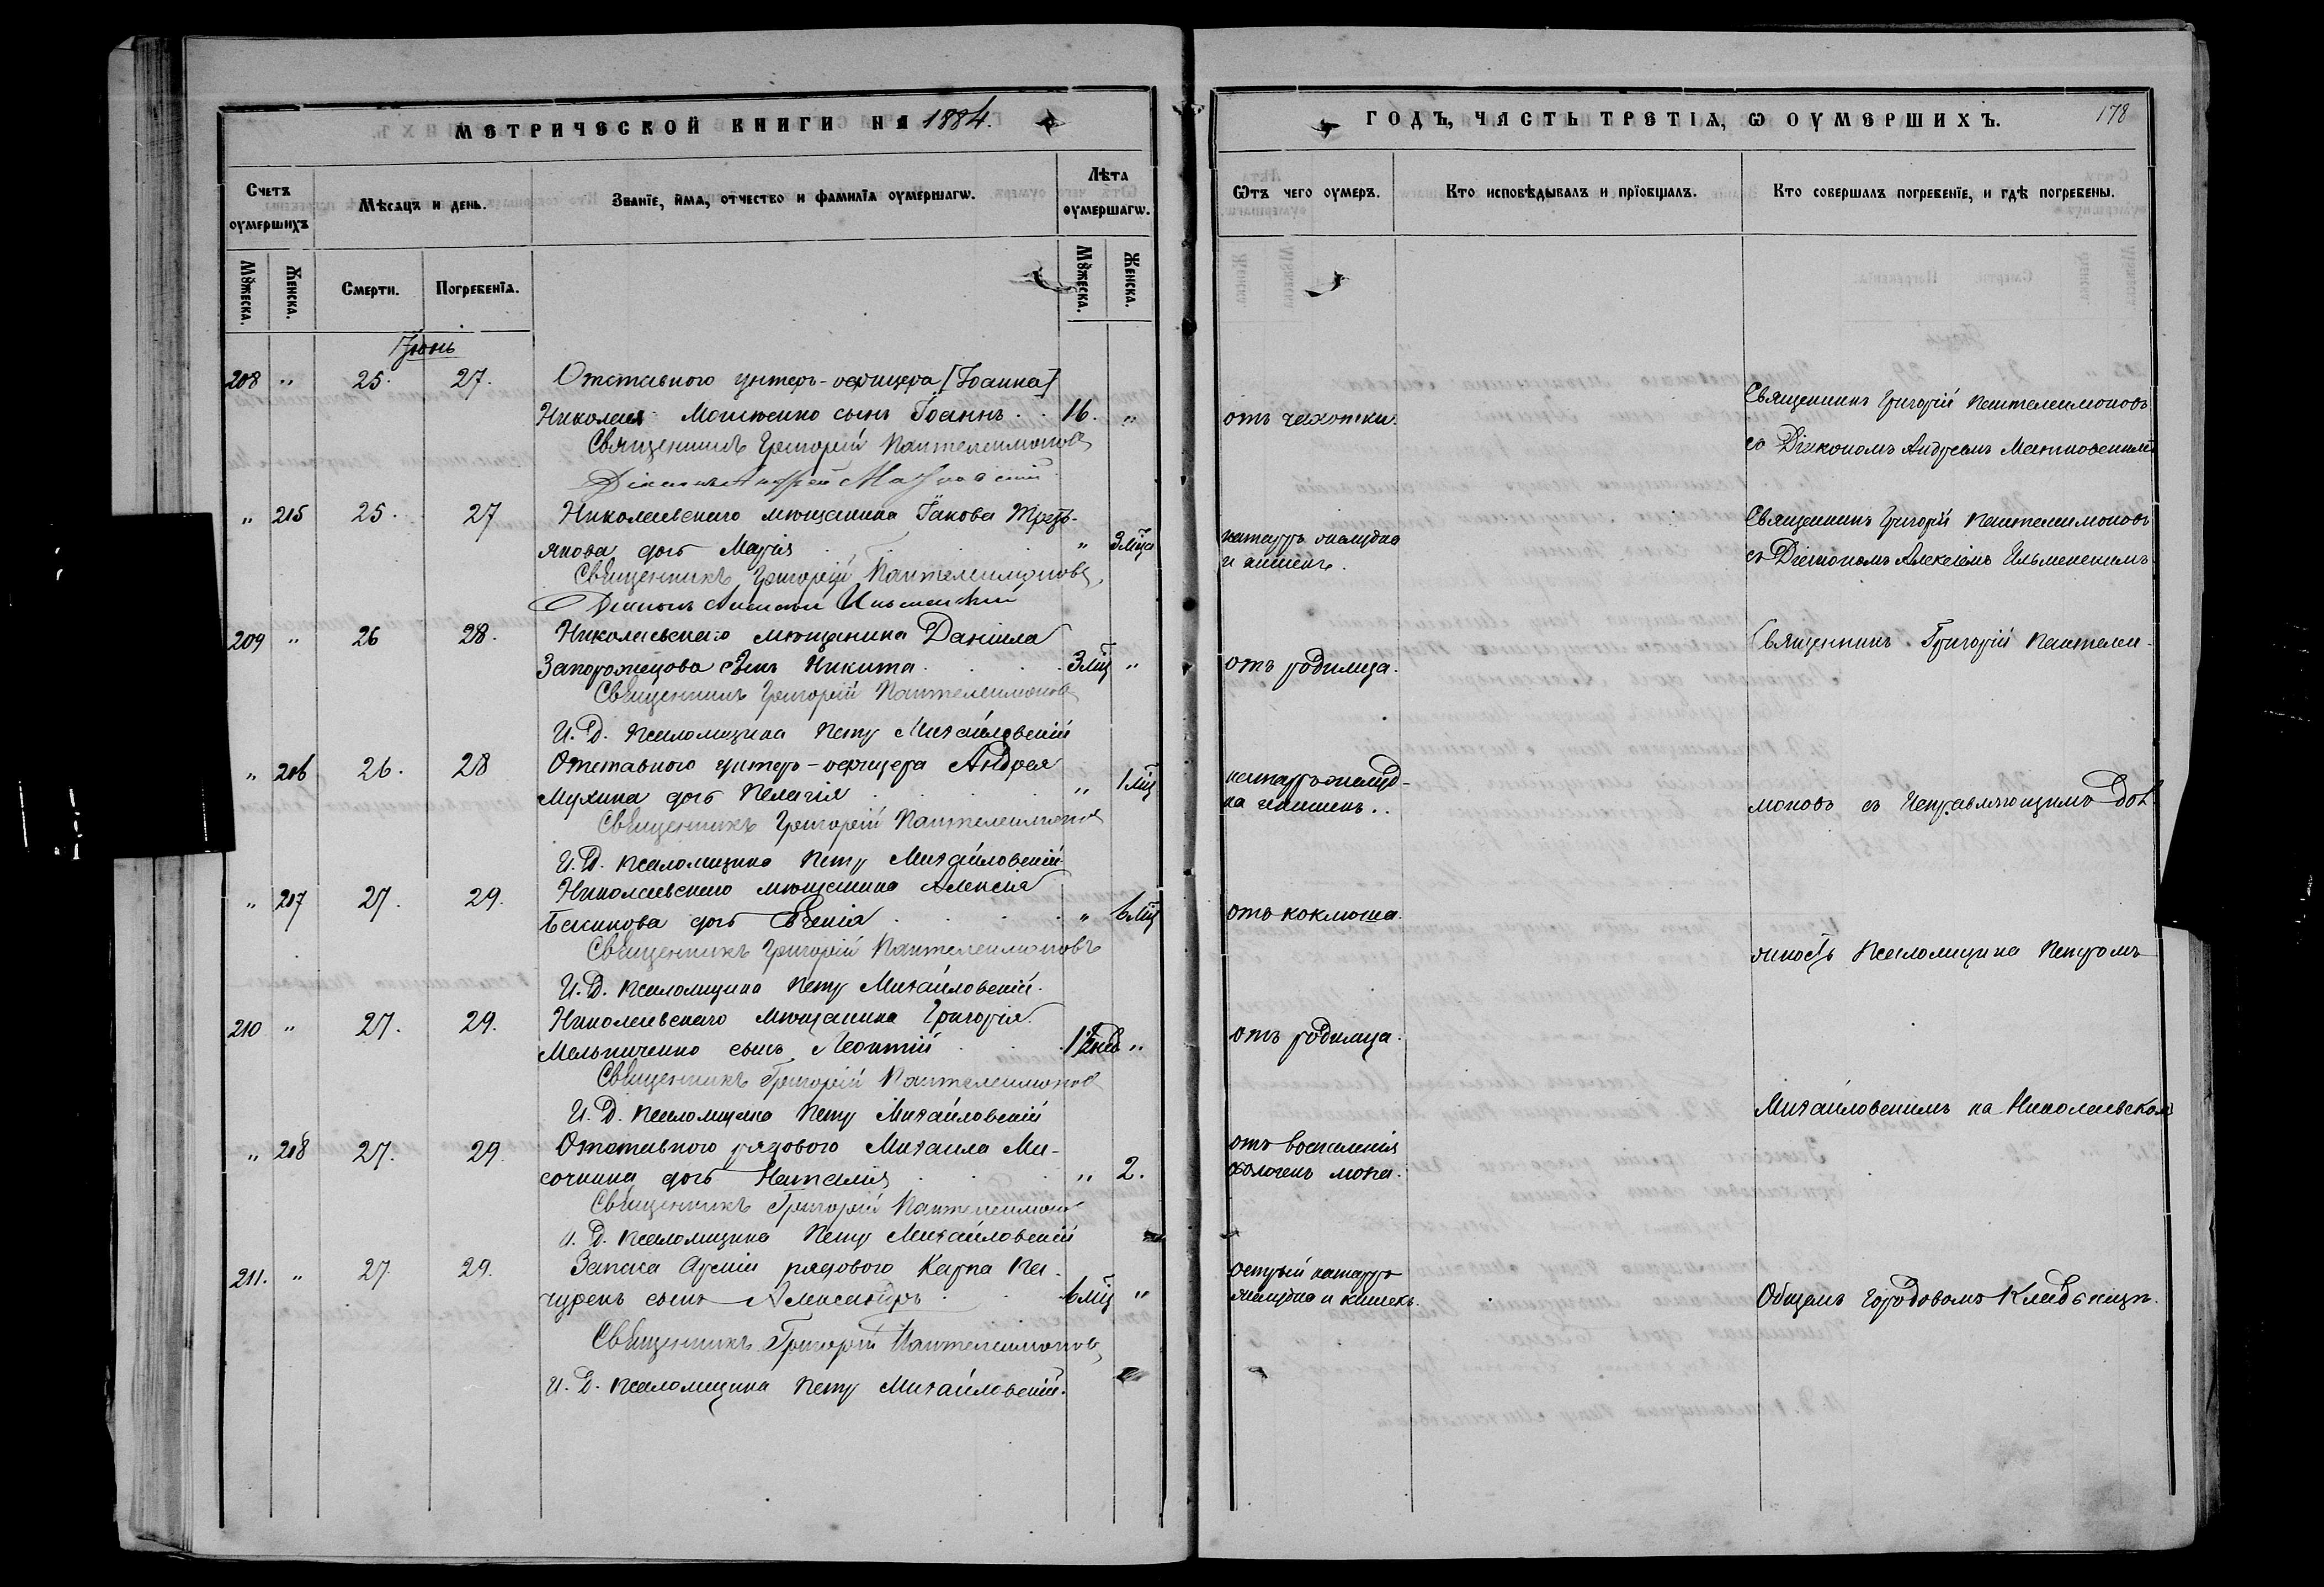 МЕТРИЧЕСКОЙ КНИГИ НА 1884.
Счетъ оумершихъ
Мѣсяцъ и день.
Званїе, имѧ, отчество и фамилїа оумершагѡ.
Лѣта оумершагѡ.
Мꙋжеска.
Женска.
Смерти.
Погребенїѧ.
Мꙋжеска.
Женска.
Іюнь
208 " 25. 27. Отставного унтеръ-офицера [Іоанна]
Николая сынъ Іоаннъ . . 16. "
Священникъ Григорій Пантелеимоновъ
Діаконъ Андрей
" 215 25. 27 Николаевскаго мѣщанина Іакова Треть-
якова дочь Марія . . . " 3 мца
Священникъ Григорій Пантелеимоновъ
Діаконъ Алексій Ильменскій
209 " 26 28. Николаевскаго мѣщанина Даніила
Запорожцова сынъ Никита . . . 3 мц "
Священникъ Григорій Пантелеимоновъ
И. Д. Псаломщика Петръ Михайловскій
" 216 26. 28 Отставного унтеръ-офицера Андрея
Мухина дочь Пелагія . . . " 1 мц
Священникъ Григорій Пантелеимоновъ
И. Д. Псаломщика Петръ Михайловскій
" 217 27. 29. Николаевскаго мѣщанина Алексія
дочь . . . " 6 мц
Священникъ Григорій Пантелеимоновъ
И. Д. Псаломщика Петръ Михайловскій.
210 " 27. 29. Николаевскаго мѣщанина Григорія
Мельниченко сынъ Леонтій . . "
Священникъ Григорій Пантелеимоновъ
И. Д. Псаломщика Петръ Михайловскій
" 218 27. 29 Отставного рядового Михаила Ми-
сочкина дочь Наталія . . . " 2.
Священникъ Григорій Пантелеимоновъ
И. Д. Псаломщика Петръ Михайловскій
211. " 27. 29. Запаса Арміи рядового Карпа Ка-
чуренъ сынъ Александръ . . 6 мц "
Священникъ Григорій Пантелеимоновъ
И. Д. Псаломщика Петръ Михайловскій.
ГОДЪ, ЧАСТЬ ТРЕТІѦ, Ѡ ОУМЕРШИХЪ.
178
Ѿтъ чего оумеръ.
Кто исповѣдывалъ и прїобщалъ.
Кто совершалъ погребенїе, и гдѣ погребены.
отъ чахотки.
Священникъ Григорій Пантелеимоновъ
со Діакономъ Андреемъ
катарръ желудка
и кишекъ.
Священникъ Григорій Пантелеимоновъ
съ Діакономъ Алексіемъ Ильменскимъ
отъ родимца.
Священникъ Григорій Пантелеи-
катарръ желуд-
ка и кишекъ..
моновъ съ Исправляющимъ Дол
отъ коклюша.
жность Псаломщика Петромъ
отъ родимца.
Михайловскимъ на Николаевском
отъ воспаленія
оболочекъ мозга.
острый катарръ
желудка и кишекъ.
Общемъ Городовомъ Кладбищѣ.